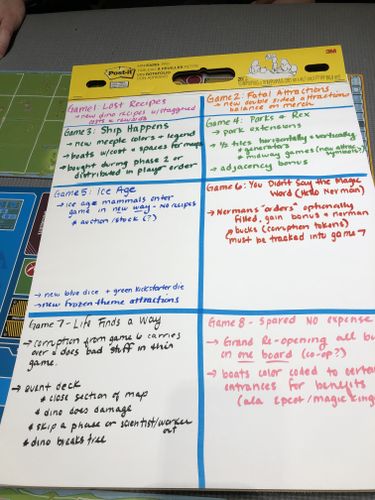 Post-it
3M
Game 1: Lost Recipes
→ new dino recipes w/staggered
costs & rewards
Game 2: Fatal Attractions
→ new double sided attraction
balance on merch
Game 3: Ship Happens
→ new meeple colors + legend
→ boats w/cost + spaces for meeples
→ bought during phase 2 or
distributed in player order
Game 4: Parks & Rex
→ park extensions
→ 1/2 tiles horizontally & vertically
• generators
• midway games (new attrac.
symbols?)
→ adjacency bonus
Game 5: Ice Age
→ ice age mammals enter
game in new way - no recipes
• auction/stock (?)
→ new blue dice + green kickstarter die
→ new frozen theme attractions
Game 6: You Didn't Say the Magic
Word (Hello Nerman)
→ Nermans "orders" optionally
filled, gain bonus & nerman
bucks (corruption tokens)
must be tracked into game 7
Game 7 - Life Finds a Way
→ corruption from game 6 carries
over & does bad stuff in this
game.
→ event deck
• close section of map
• dino does damage
• skip a phase or scientist/worker
out
• dino breaks free
Game 8 - Spared No Expense
→ Grand Re-opening all bu
in one board (co-op?)
→ boats color coded to certai
entrances for benefits
(ala epcot/magic king